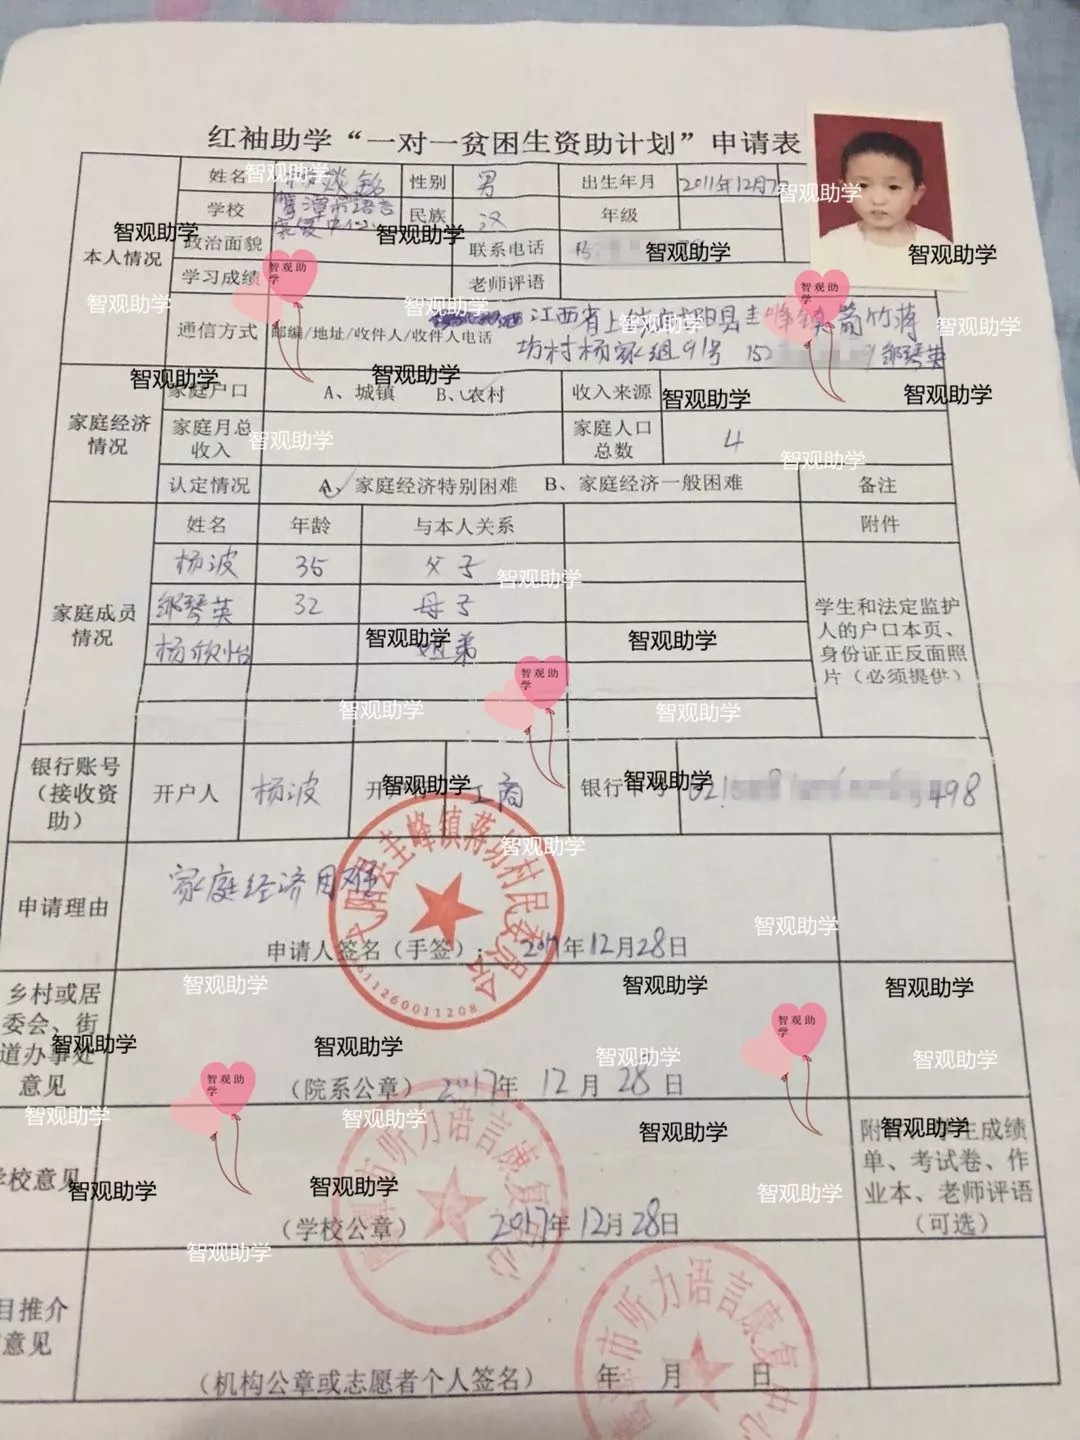 红袖助学“一对一贫困生资助计划”申请表
本人情况
姓名 性别 男 出生年月 2011年12月7
学校 鹰潭市语言康复中心 民族 汉 年级
政治面貌 联系电话
学习成绩 老师评语
通信方式 邮编/地址/收件人/收件人电话 江西省上饶市弋阳县圭峰镇葡竹蒋
坊村杨家组91号 152 9 邹琴英
家庭经济情况
家庭户口 A、城镇 B、农村 收入来源
家庭月总收入 家庭人口总数 4
认定情况 A、家庭经济特别困难 B、家庭经济一般困难 备注
家庭成员情况
姓名 年龄 与本人关系 附件
杨波 35 父子
邹琴英 32 母子
杨欣怡 姐弟
学生和法定监护
人的户口本页、
身份证正反面照
片（必须提供）
银行账号
（接收资
助）
开户人 杨波 工商 银行 498
申请理由
家庭经济困难
申请人签名（手签）： 2017年12月28日
弋阳县圭峰镇蒋坊村民委员会
3611260011208
乡村或居
委会、街
道办事处
意见
（院系公章） 2017年 12月 28日
学校意见
（学校公章） 2017年12月28日
市听力语言康复中心
学生成绩
单、考试卷、作
业本、老师评语
（可选）
目推介
意见
（机构公章或志愿者个人签名） 年 月 日
市听力语言康复中心
智观助学